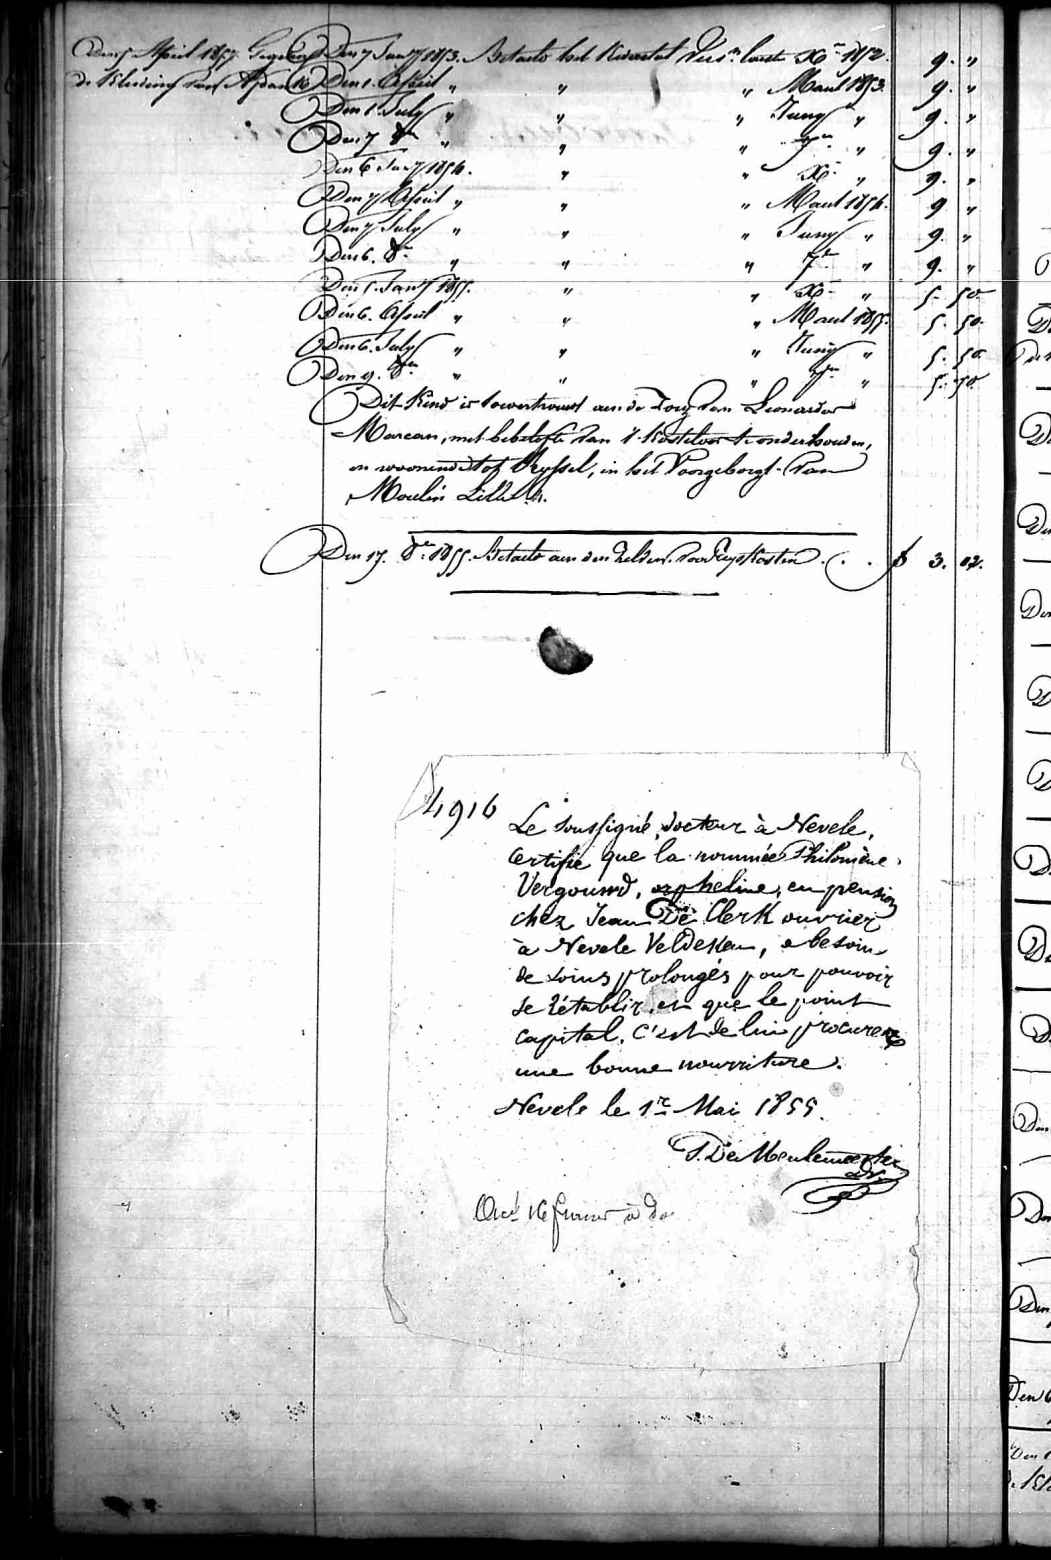 Den 7 Jan.y 1853. Betaelt het kwartael verv.n laest X.e 1852. 9. "
Den 1. April " " " Maert 1853. 9. "
Den 1. July " " " Juny " 9. "
Den 7 8.re " " " 7.re " 9. "
Den 6 Jan.y 1854. " " X.e " 9. "
Den 7 April " " " Maert 1854. 9 "
Den 7 July " " " Juny " 9. "
Den 6. 8.re " " " 7.re " 9. "
Den 5. Jan.y 1855. " " X.e " 5. 50.
Den 6. April " " " Maert 1855. 5. 50.
Den 6. July " " " Juny " 5. 50
Den 9. 8.re " " " 7.re " 5. 50.
Dit Kind is toevertrouwt aen de Zorg van Leonardus
Marcan, met belofte van 't kosteloos te onderhouden,
en woonende tot Ryssel, in het Voorgeborgt van
Moulin Lille
Den 17. 8.re 1855. Betaelt aen den zelven voor Reyskosten . . . 3. 02.
4916
Le soussigné, docteur à Nevele,
certifie que la nommée Philomène
Vergouwd, orpheline, en pension
chez Jean De Clerk ouvrier
à Nevele Veldeken, a besoin
de soins prolongés pour pouvoir
se rétablir, et que le point
capital, c'est de lui procurer
une bonne nourriture.
Nevele le 1.r Mai 1855.
De Meulemeester